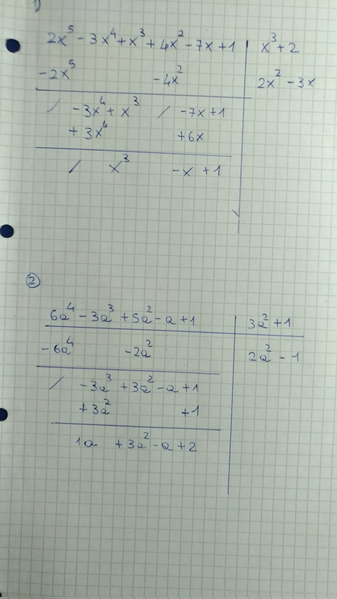 1)
2x⁵ - 3x⁴ + x³ + 4x² - 7x + 1 | x³ + 2
- 2x⁵ - 4x² | 2x² - 3x
/ - 3x⁴ + x³ / - 7x + 1
+ 3x⁴ + 6x
/ x³ - x + 1
②
6a⁴ - 3a³ + 5a² - a + 1 | 3a² + 1
- 6a⁴ - 2a² | 2a² - 1
/ - 3a³ + 3a² - a + 1
+ 3a² + 1
1a + 3a² - a + 2